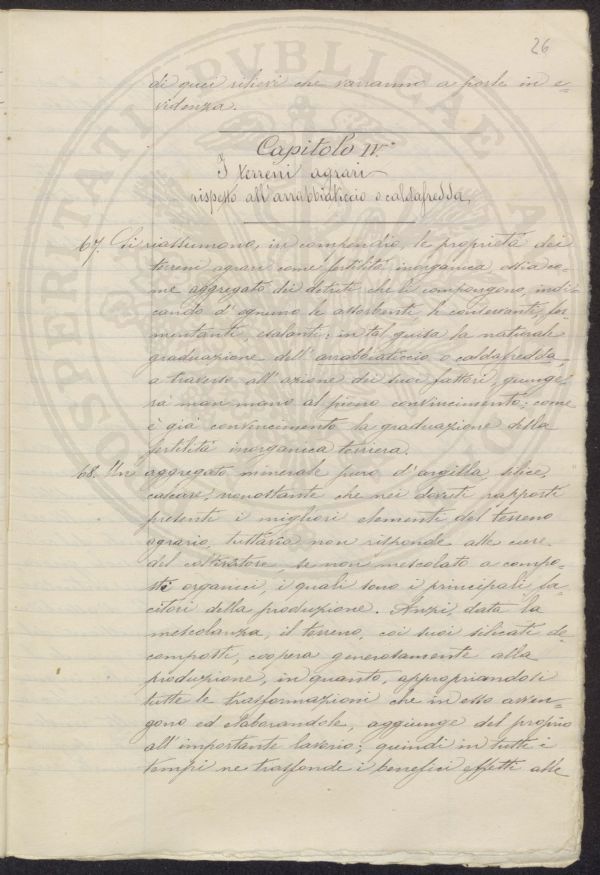 26
di quei rilievi che varranno a porle in e-
videnza.
Capitolo IV.°
I terreni agrari
rispetto all'arrabbiaticcio o caldafredda.
67. Si riassumono, in compendio, le proprietà dei
terreni agrari come fertilità inorganica, ossia co-
me aggregato dei detriti che li compongono, indi-
cando d'ognuno le assorbenti, le conservanti, fer-
mentanti, esalanti; in tal guisa la naturale
graduazione dell'arrabbiaticcio o caldafredda,
a traverso all'azione dei suoi fattori, giunge-
rà man mano al pieno convincimento; come
è già convincimento la graduazione della
fertilità inorganica terriera.
68. Un aggregato minerale puro d'argilla, silice,
calcare, nonostante che nei dovuti rapporti
presenti i migliori elementi del terreno
agrario, tuttavia non risponde alle cure
del coltivatore, se non mescolato a compo-
sti organici, i quali sono i principali fa-
citori della produzione. Anzi, data la
mescolanza, il terreno, coi suoi silicati de-
composti, coopera generosamente alla
produzione, in quanto, appropriandosi
tutte le trasformazioni che in esso avven-
gono ed elaborandole, aggiunge del proprio
all'importante lavorio; quindi in tutti i
tempi ne trasfonde i benefici effetti alle
PVBLICAE